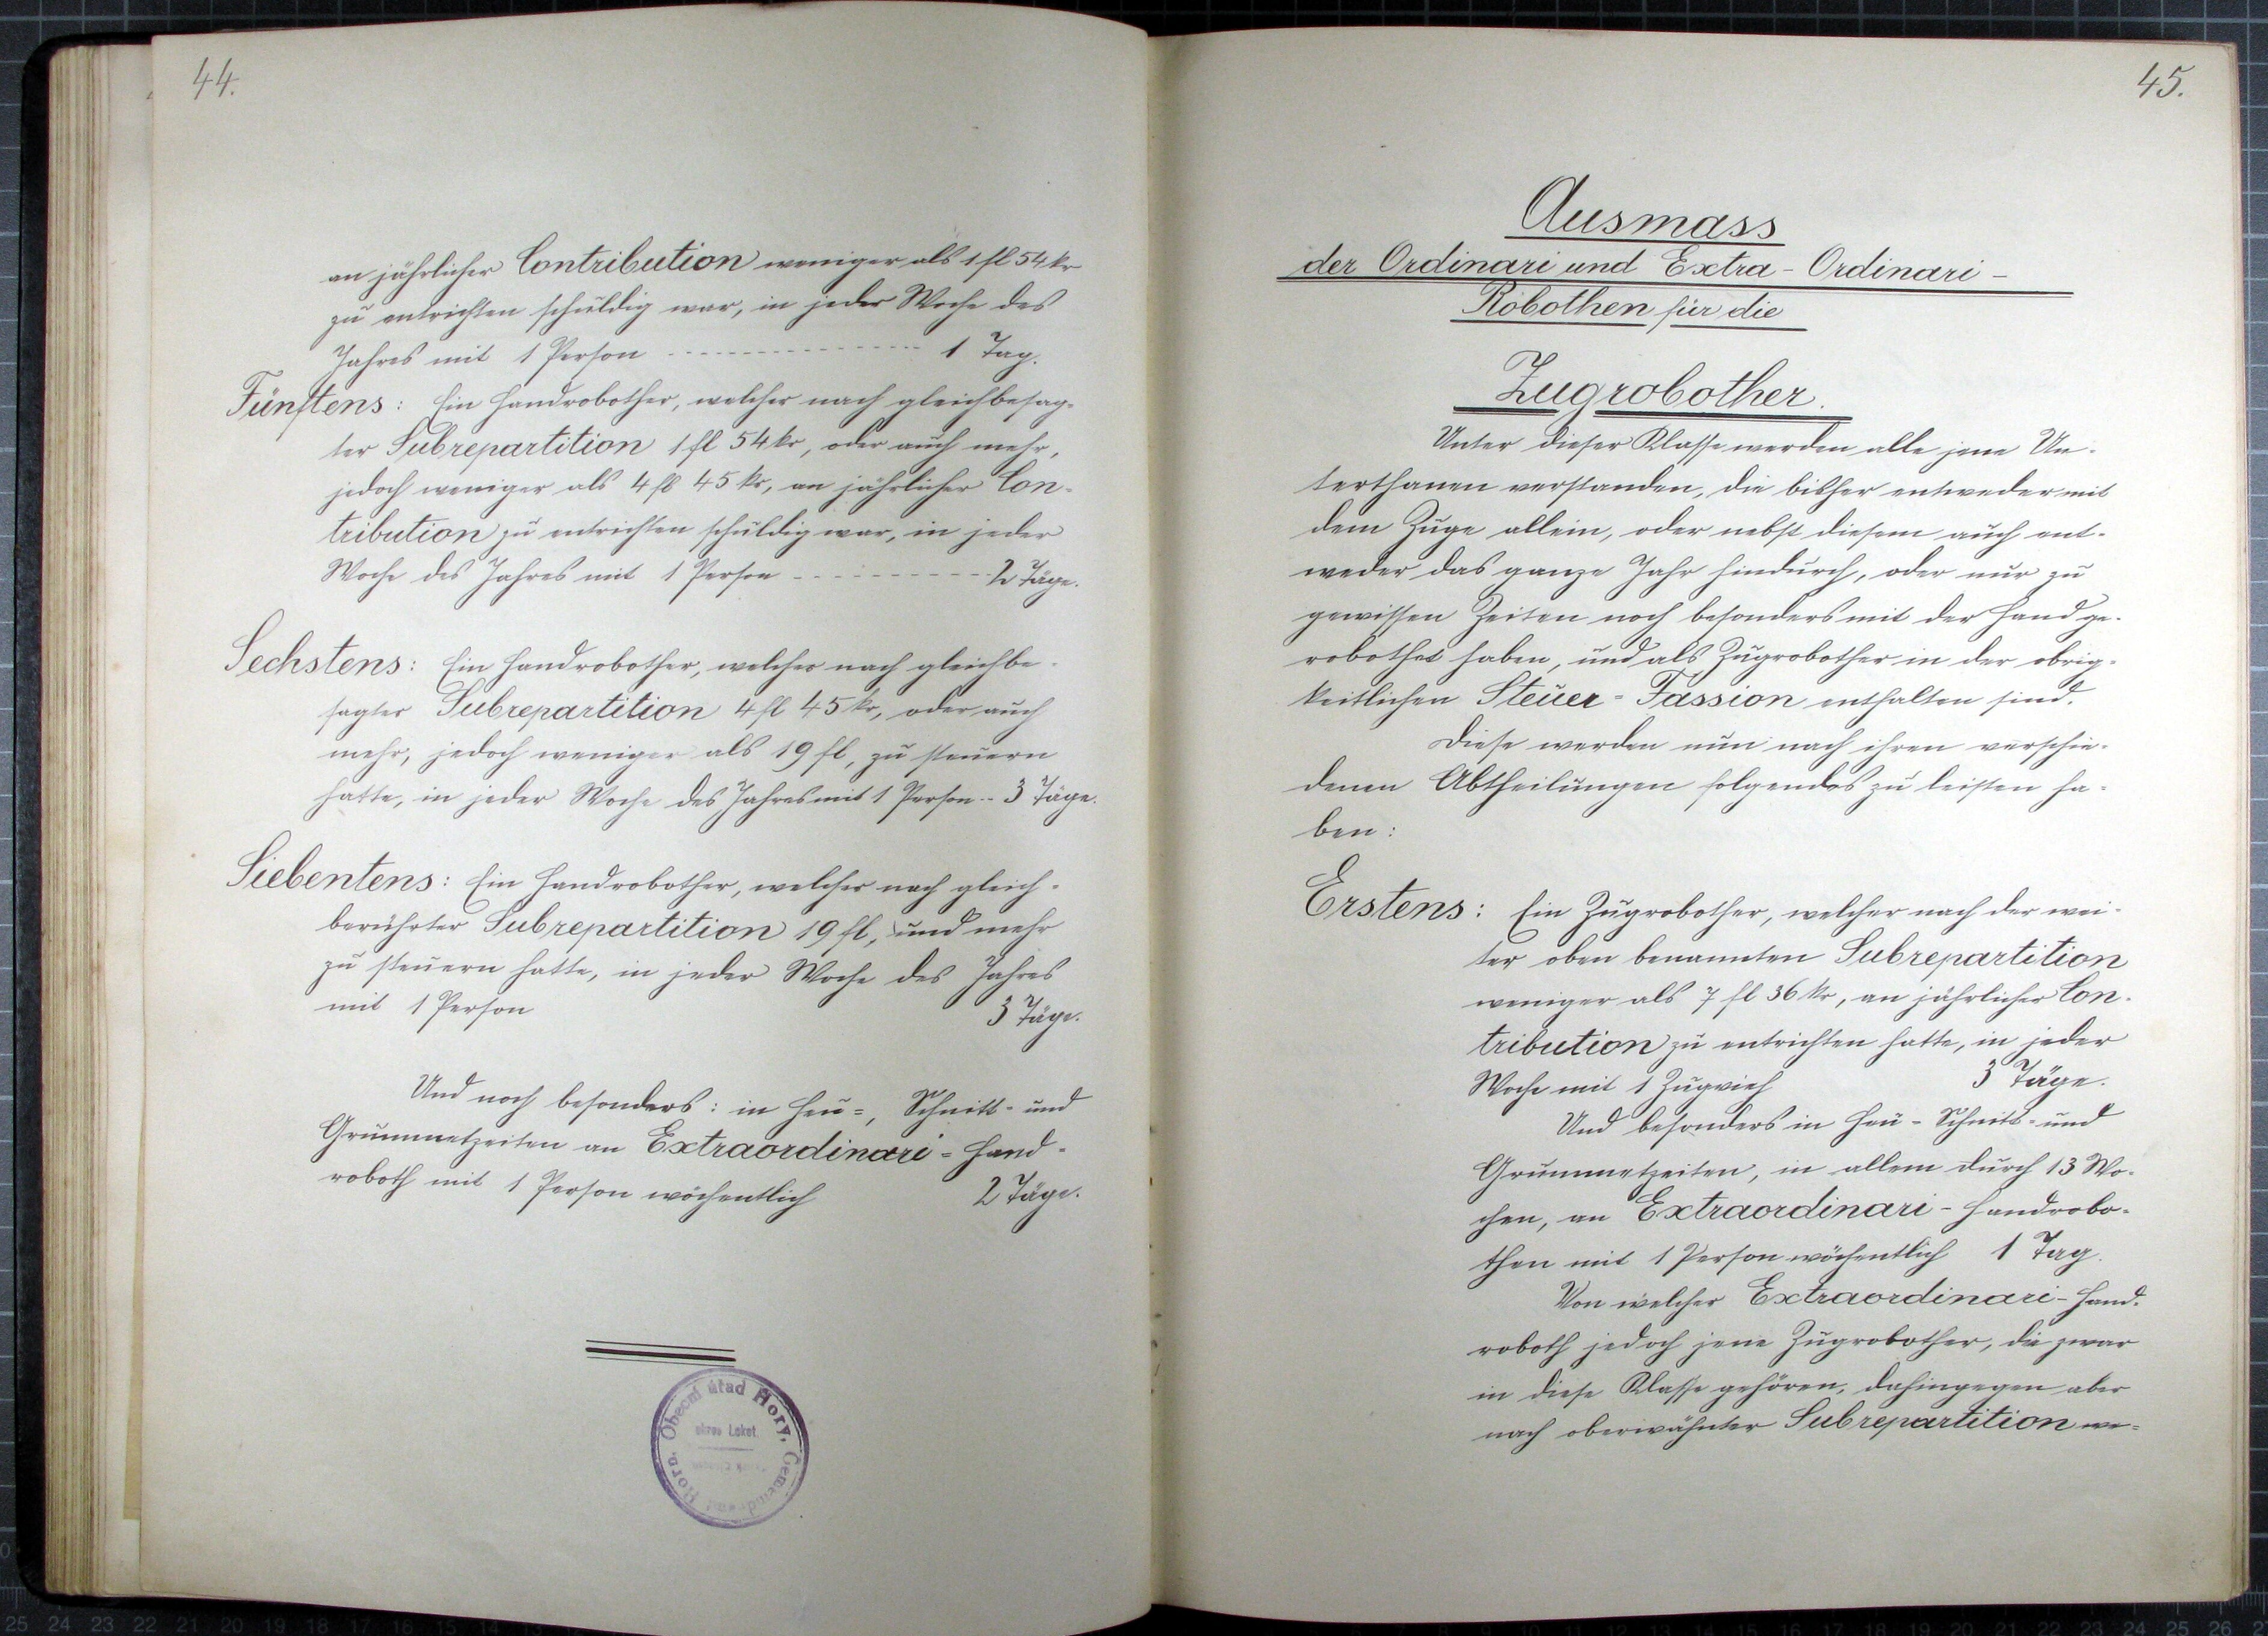 44.
an jährlicher Contribution weniger als 1 fl 54 kr
zu entrichten schuldig war, in jeder Woche des
Jahres mit 1 Person ---------------- 1 Tag.
Fünftens: Ein Handrobother, welcher nach gleichbesag-
ter Subrepartition 1 fl 54 kr, oder auch mehr,
jedoch weniger als 4 fl 45 kr, an jährlicher Con-
tribution zu entrichten schuldig war, in jeder
Woche des Jahres mit 1 Person ------------ 2 Täge.
Sechstens: Ein Handrobother, welcher nach gleichbe-
sagter Subrepartition 4 fl 45 kr, oder auch
mehr, jedoch weniger als 19 fl, zu steuern
hatte, in jeder Woche des Jahres mit 1 Person -- 3 Täge.
Siebentens: Ein Handrobother, welcher nach gleich-
berührter Subrepartition 19 fl, und mehr
zu steuern hatte, in jeder Woche des Jahres
mit 1 Person 3 Täge.
Und noch besonders: in Heu-, Schnitt- und
Grummetzeiten an Extraordinari-Hand-
roboth mit 1 Person wöchentlich 2 Täge.
Obecní úřad Hory, Gemeindeamt Horn.
okres Loket.
45.
Ausmass
der Ordinari und Extra-Ordinari-
Robothen für die
Zugrobother.
Unter dieser Klasse werden alle jene Un-
terthanen verstanden, die bisher entweder mit
dem Zuge allein, oder nebst diesem auch ent-
weder das ganze Jahr hindurch, oder nur zu
gewissen Zeiten noch besonders mit der Hand ge-
robothet haben, und als Zugrobother in der obrig-
keitlichen Steuer-Fassion enthalten sind.
Diese werden nun nach ihren verschie-
denen Abtheilungen folgendes zu leisten ha-
ben:
Erstens: Ein Zugrobother, welcher nach der wei-
ter oben benannten Subrepartition
weniger als 7 fl 36 kr, an jährlicher Con-
tribution zu entrichten hatte, in jeder
Woche mit 1 Zugvieh 3 Täge.
Und besonders in Heu- Schnitt- und
Grummetzeiten, in allem durch 13 Wo-
chen, an Extraordinari-Handrobo-
then mit 1 Person wöchentlich 1 Tag.
Von welcher Extraordinari-Hand-
roboth jedoch jene Zugrobother, die zwar
in diese Klasse gehören, dahingegen aber
nach oberwähnter Subrepartition we-